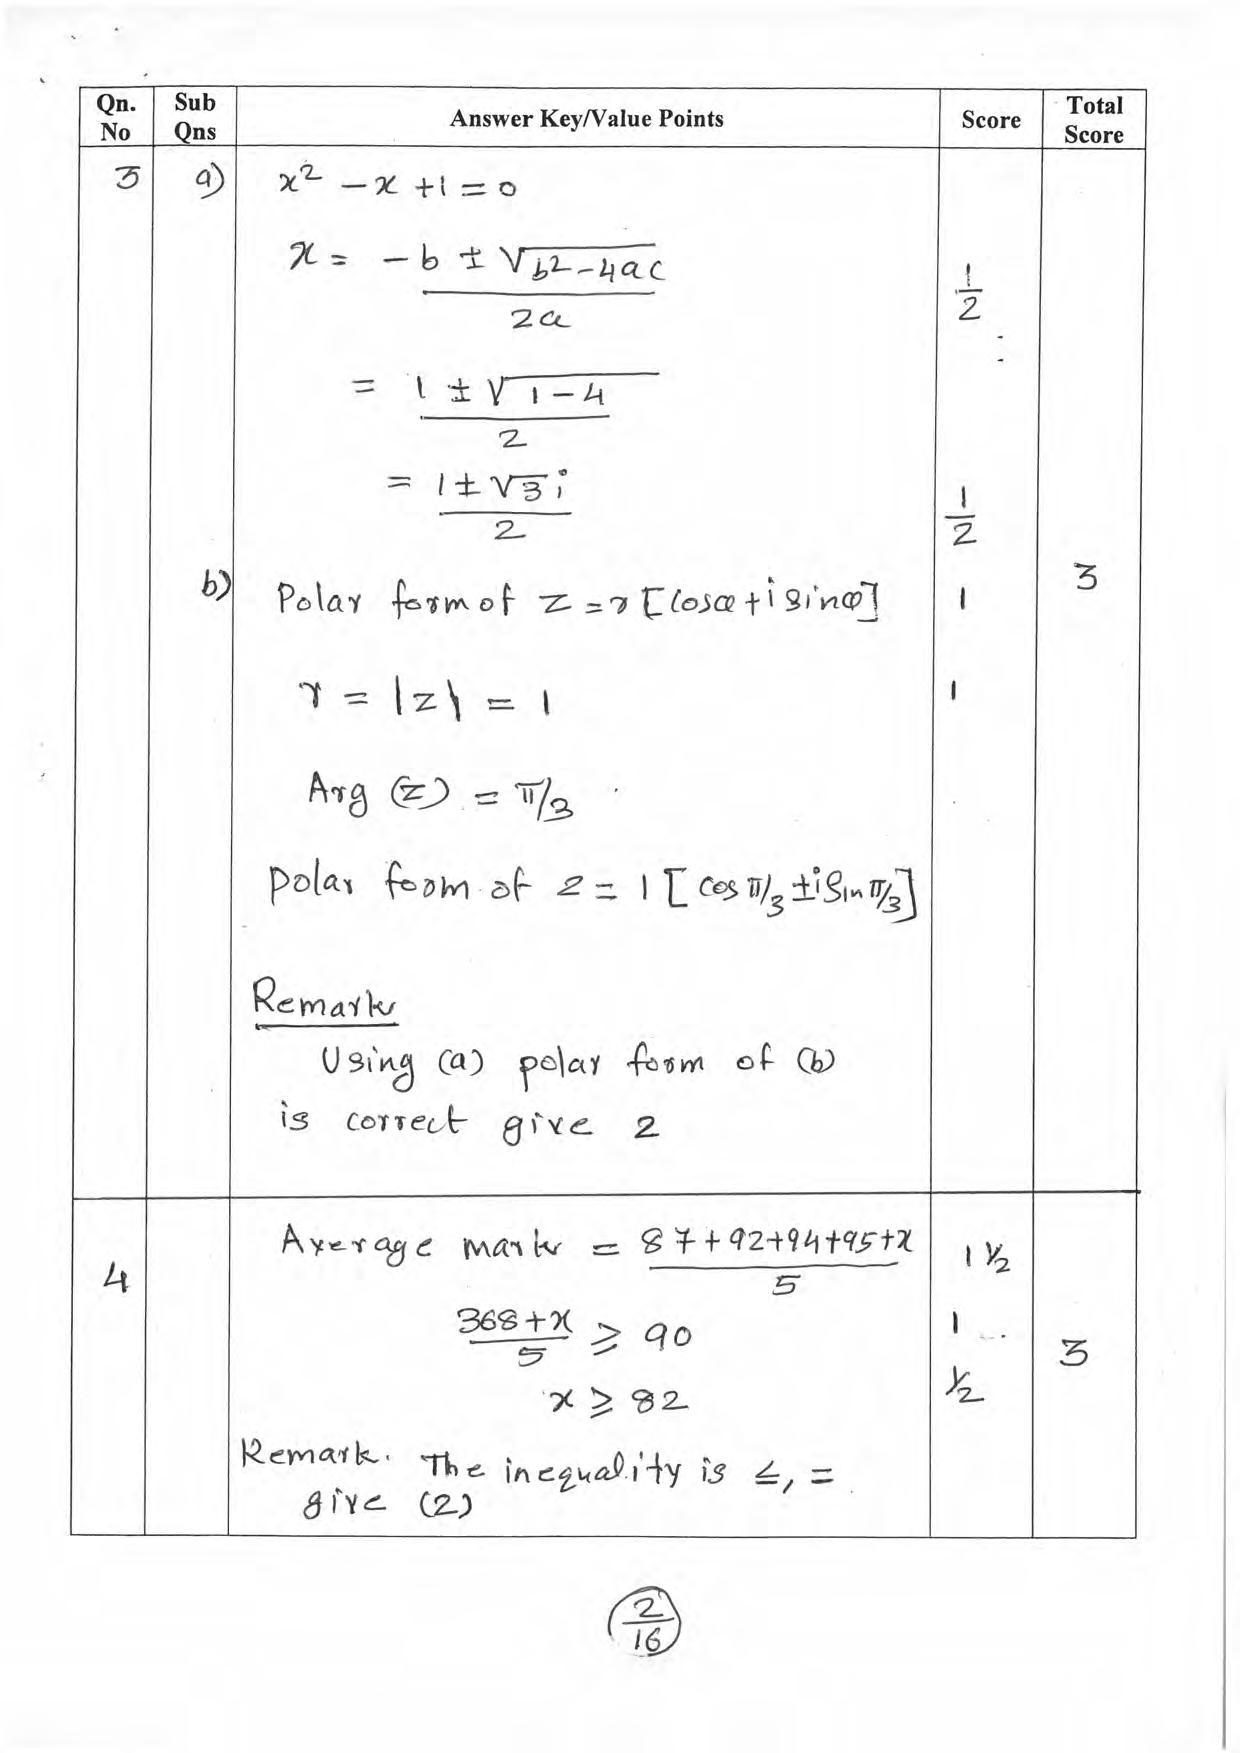 Qn. No | Sub Qns | Answer Key/Value Points | Score | Total Score
3 a) x² - x + 1 = 0
x = -b ± √b²-4ac / 2a 1/2
= 1 ± √1-4 / 2
= 1 ± √3 i / 2 1/2
b) Polar form of z = r [cosα + i sinα] 1 3
r = |z| = 1 1
Arg (z) = π/3
polar form of z = 1 [cos π/3 ± i Sin π/3]
Remark
Using (a) polar form of (b)
is correct give 2
4 Average mark = 87+92+94+95+x / 5 1 1/2
368+x / 5 ≥ 90 1 3
x ≥ 82 1/2
Remark. The inequality is ≤, =
give (2)
2/16